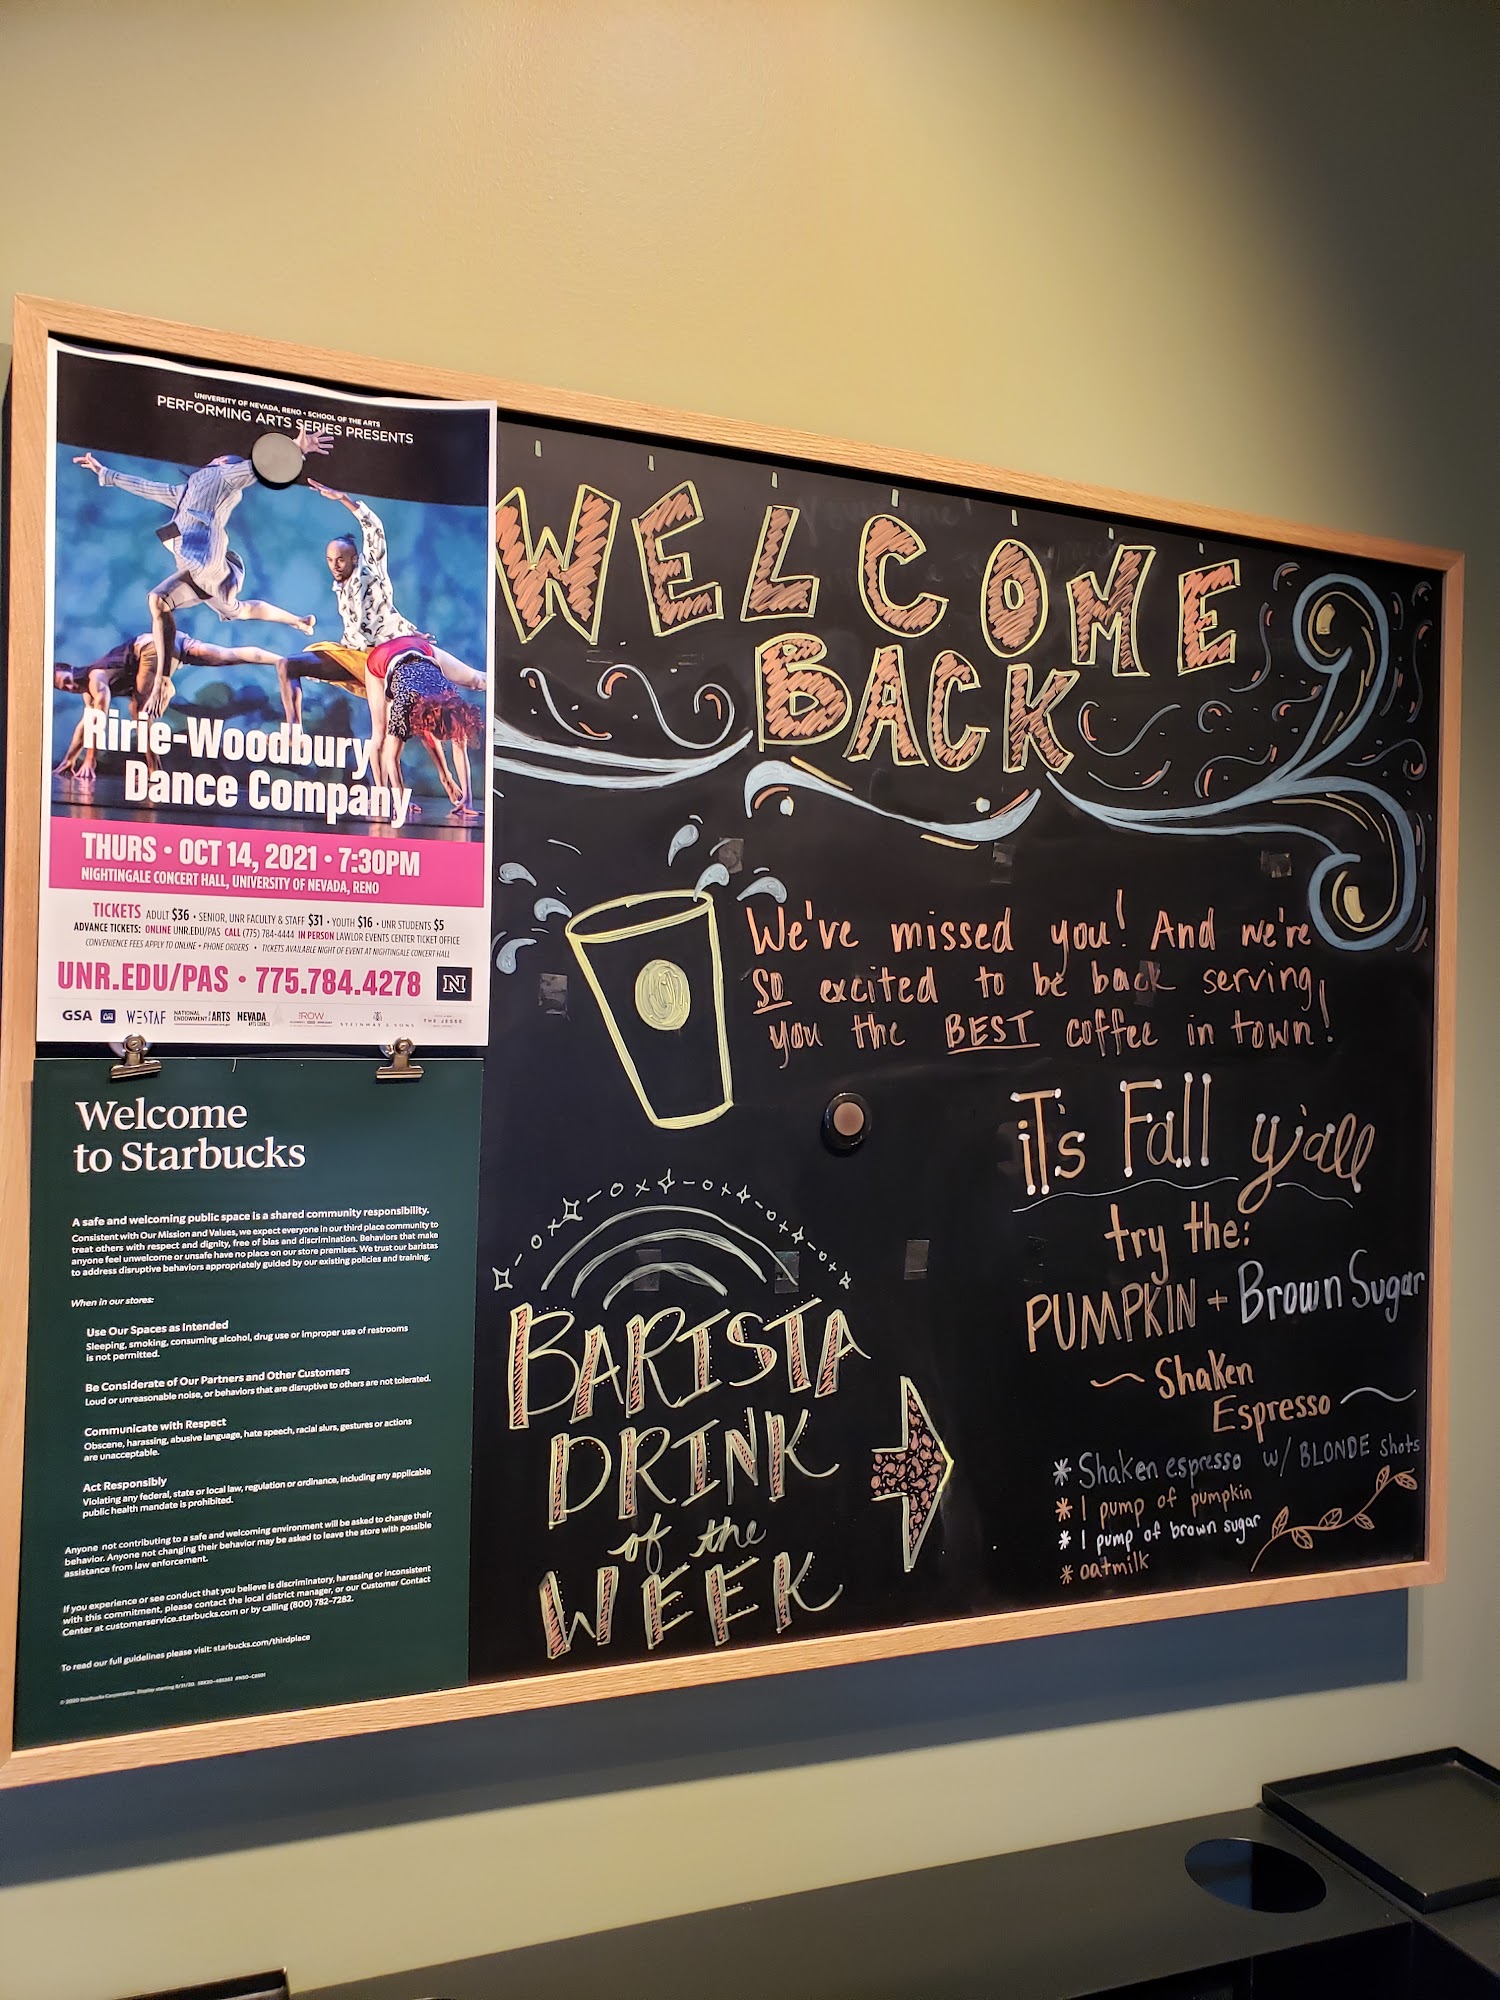 UNIVERSITY OF NEVADA, RENO • SCHOOL OF THE ARTS
PERFORMING ARTS SERIES PRESENTS
Ririe-Woodbury
Dance Company
THURS • OCT 14, 2021 • 7:30PM
NIGHTINGALE CONCERT HALL, UNIVERSITY OF NEVADA, RENO
TICKETS ADULT $36 • SENIOR, UNR FACULTY & STAFF $31 • YOUTH $16 • UNR STUDENTS $5
ADVANCE TICKETS: ONLINE UNR.EDU/PAS CALL (775) 784-4444 IN PERSON LAWLOR EVENTS CENTER TICKET OFFICE
CONVENIENCE FEES APPLY TO ONLINE + PHONE ORDERS • TICKETS AVAILABLE NIGHT OF EVENT AT NIGHTINGALE CONCERT HALL
UNR.EDU/PAS • 775.784.4278
N
GSA WESTAF NATIONAL ENDOWMENT for the ARTS NEVADA ARTS COUNCIL THE ROW STEINWAY & SONS THE JESSE
Welcome
to Starbucks
A safe and welcoming public space is a shared community responsibility.
Consistent with Our Mission and Values, we expect everyone in our third place community to
treat others with respect and dignity, free of bias and discrimination. Behaviors that make
anyone feel unwelcome or unsafe have no place on our store premises. We trust our baristas
to address disruptive behaviors appropriately guided by our existing policies and training.
When in our stores:
Use Our Spaces as Intended
Sleeping, smoking, consuming alcohol, drug use or improper use of restrooms
is not permitted.
Be Considerate of Our Partners and Other Customers
Loud or unreasonable noise, or behaviors that are disruptive to others are not tolerated.
Communicate with Respect
Obscene, harassing, abusive language, hate speech, racial slurs, gestures or actions
are unacceptable.
Act Responsibly
Violating any federal, state or local law, regulation or ordinance, including any applicable
public health mandate is prohibited.
Anyone not contributing to a safe and welcoming environment will be asked to change their
behavior. Anyone not changing their behavior may be asked to leave the store with possible
assistance from law enforcement.
If you experience or see conduct that you believe is discriminatory, harassing or inconsistent
with this commitment, please contact the local district manager, or our Customer Contact
Center at customerservice.starbucks.com or by calling (800) 782-7282.
To read our full guidelines please visit: starbucks.com/thirdplace
© 2020 Starbucks Corporation. Display starting 8/31/20.
WELCOME
BACK
We've missed you! And we're
SO excited to be back serving
you the BEST coffee in town!
iT's Fall y'all
try the:
PUMPKIN + Brown Sugar
~ Shaken
Espresso ~
* Shaken espresso w/ BLONDE shots
* 1 pump of pumpkin
* 1 pump of brown sugar
* oatmilk
BARISTA
DRINK
of the
WEEK